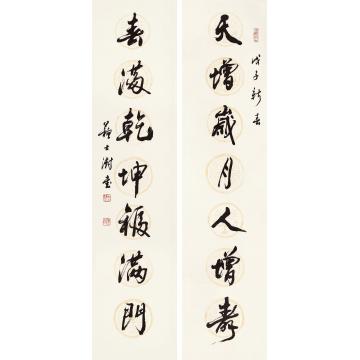 天增歲月人增壽
戊子新春
春滿乾坤福滿門
蘇士澍書